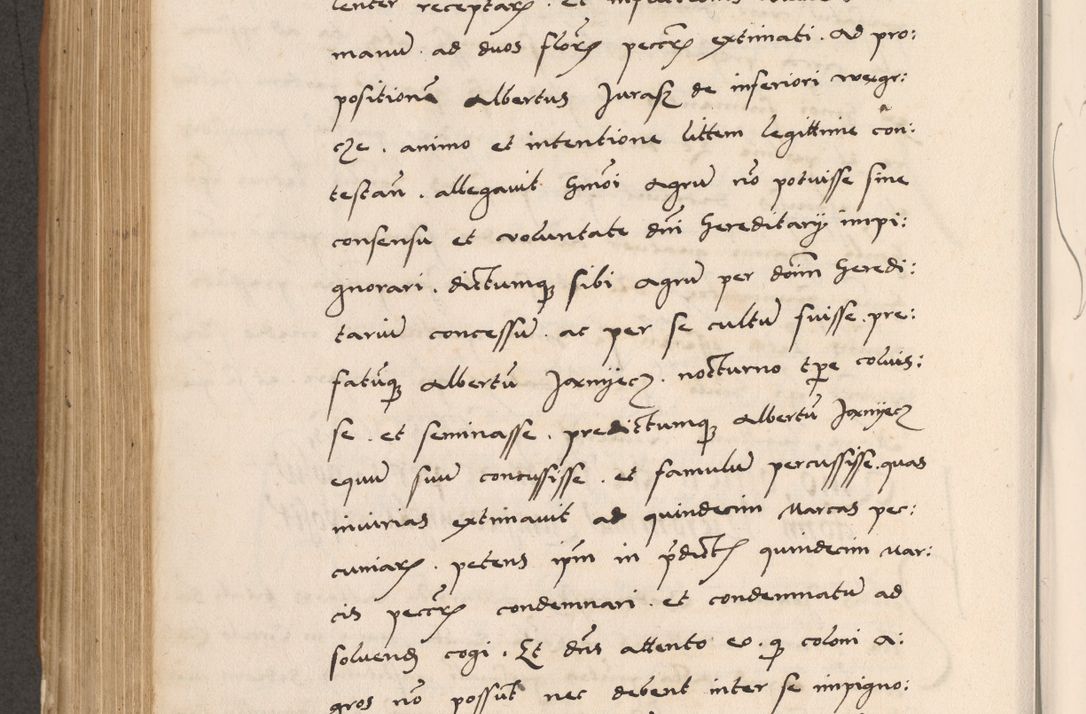 lenter receptarꝝ . et
manū . ad duos florꝝ peccrꝝ extimati . Ad pro:
positionē Albertus Jurasz de inferiori wegr:
cze . animo et intentione littem legittime cōn:
testan̄ . allegavit hmōi agrū nō potuisse sine
consensu et voluntate dn̄i hereditarÿ impi:
gnorari . dictumqꝫ sibi agrū per dom̄ heredi:
tariū concessū . ac per se cultū fuisse . pre:
fatūqꝫ Albertū Jarmÿecz . nocturno tp̄e coluis:
se . et seminasse . predictumqꝫ Albertū Jarmÿecz
equū suū concussisse . et famulū percussisse . quas
iniurias extimavit ad quindecim Marcas pec:
cuniarꝝ . petens ip̄m in p̄dictꝭ quindecim Mar:
cis peccrꝝ condemnari . et condemnatū ad
solvendꝭ cogi . Et dn̄s attento eo . qꝫ coloni a:
gros nō possūt nec debent inter se impigno: